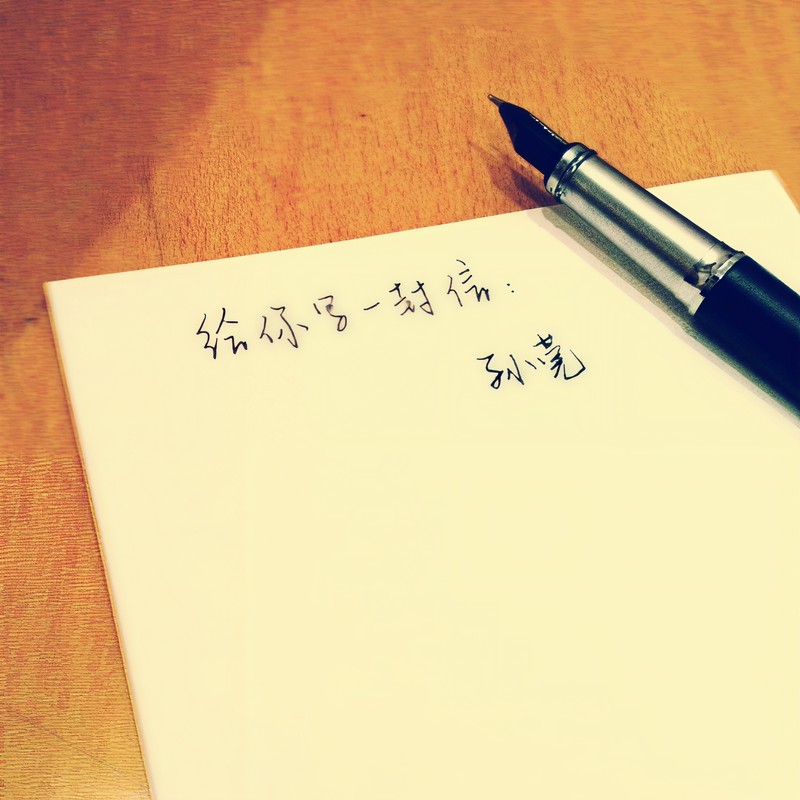 给你写一封信：
孙莞